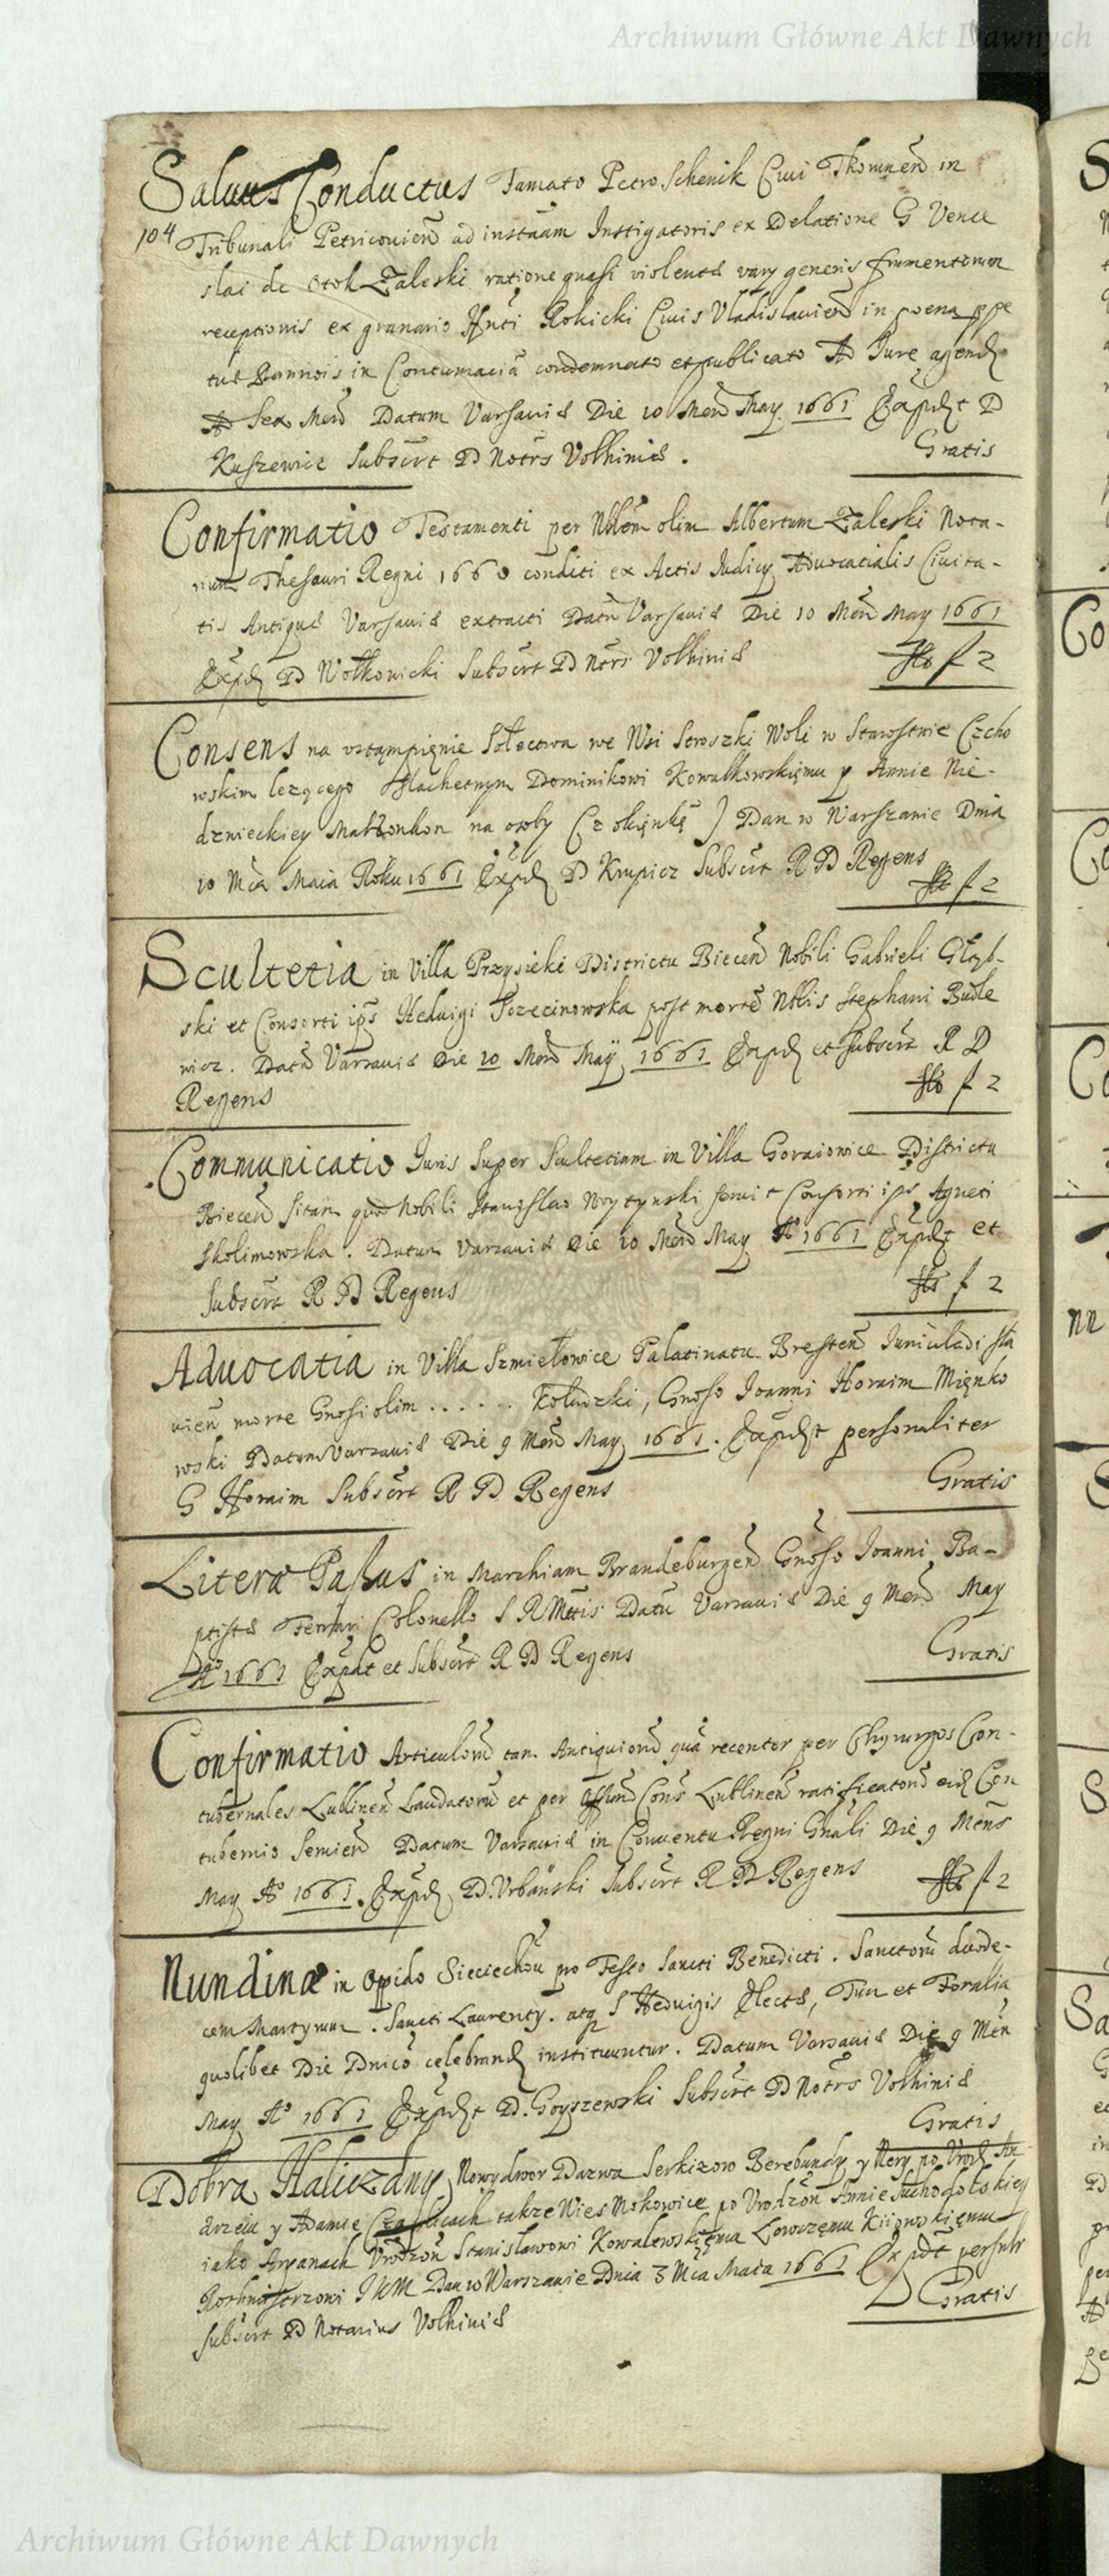 Archiwum Główne Akt Dawnych
Salvus Conductus Famato Petro Schenik Civi Thorunen in
104 Tribunali Petricovien ad instãam Instigatoris ex Delatione G Vence
slai de Otok Zaleski ratione quasi violentæ vary generis frumentorum
receptionis ex granario Hnti Rokicki Civis Vladislavien in poena ppe
tuæ Bannois in Contumaciã condemnato et publicato Ad Jure agend
Ad Sex Men Datum Varsaviæ Die 10 Men May 1661 Expdt D
Kuszewicz Subscrt D Notrs Volhiniæ . Gratis
Confirmatio Testamenti per Nblem olim Albertum Zaleski Nota-
rium Thesauri Regni 1660 conditi ex Actis Judicy Advocatialis Civita-
tis Antiquæ Varsaviæ extracti Datũ Varsaviæ Die 10 Men May 1661
Expd D Wołkowicki Subscrt D Ntrs Volhiniæ f 2
Consens na vstąmpięnie Sołectwa we Wsi Stroszki Woli w Starostwie Czcho
wskim leżącego Szlachetnym Dominikowi Kowalkowskięmu y Annie Nie-
dznieckiey Małżonkon na osoby (z okięnkę) Dan w Warszawie Dnia
10 Mca Maia Roku 1661 Expd D Krupicz Subscrt R D Regens f 2
Scultetia in Villa Przysieki Districtu Biecen Nobili Gabrieli Głęb-
ski et Consorti ips Hedvigi Trzecinowska post morte Nblis Stephani Budle
wicz . Datũ Varsaviæ Die 10 Men Maÿ 1661 Expd et subscrt R D
Regens f 2
Communicatio Juris Super Scultetiam in Villa Goraiowice Districtu
Biecen sitam quo Nobili Stanislao Woytynski servit Consorti ips Agneti
Skolimowska . Datum Varsaviæ Die 10 Men May Aº 1661 Expdt et
Subscrt R D Regens f 2
Advocatia in Villa Szmiełowice Palatinatu Bresten Juniuladista
vien morte Gnosi olim ...... Kołudzki, Gnoso Joanni Horaim Mięnko
wski Datum Varsaviæ Die 9 Men May 1661. Expdt personaliter
G Horaim Subscrt R D Regens Gratis
Literæ Passus in Marchiam Brandeburgen Gnoso Joanni Ba-
ptistæ Ferrari Colonello S R Mttis Datũ Varsaviæ Die 9 Men May
Aº 1661 Expdt et Subscrt R D Regens Gratis
Confirmatio Articulorũ tam Antiquiorũ quã recenter per Chyrurgos Con-
tubernales Lublinen Laudatorũ et per Cons Lublinen ratificatorũ eid Con
tubernio Servien Datum Varsaviæ in Conventu Regni Gnali Die 9 Mens
May Aº 1661. Expd D. Urbanski Subscrt R D Regens f 2
Nundinæ in Oppido Sieciechow pro Festo Sancti Benedicti . Sanctorũ duode-
cem Martyrum . Sancti Laurenty . atq S Hedvigis Electæ, Tum et Foralia
quolibet Die Dnico celebrand instituuntur . Datum Varsaviæ Die 9 Men
May Aº 1661 Expdt D. Goyszewski Subscrt D Notrs Volhiniæ
Gratis
Dobra Haliczany Nowydwor Dazwa Serkizow Berebundy y Nery po Urodz An-
drzeiu y Adamie Czaplicach takze Wies Mokowice po Urodzon Annie Suchodolskiey
iako Aryanach Urodzon Stanisławowi Kowalewskięmu Łowczęmu Kiiowskięmu
Rothmistrzowi JKM Dan w Warszawie Dnia 3 Mca Maia 1661 Expdt persnlr
Subscrt D Notarius Volhiniæ Gratis
Archiwum Główne Akt Dawnych